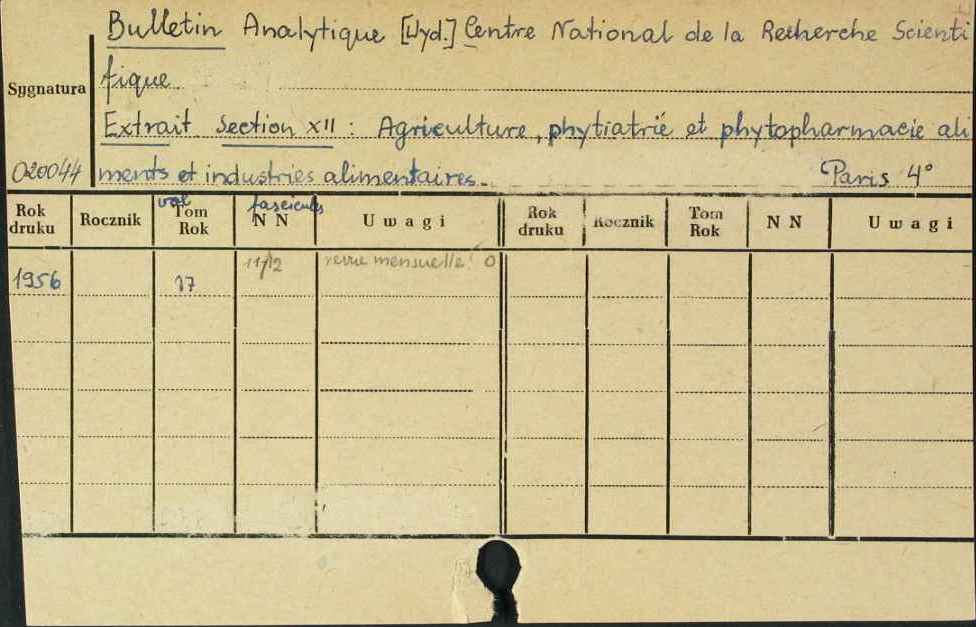 Bulletin Analytique [Wyd.] Centre National de la Recherche Scienti
fique
Sygnatura
Extrait Section XII : Agriculture, phytiatrie et phytopharmacie ali
020044 ments et industries alimentaires. Paris 4°
vol fascicules
Rok druku Rocznik Tom Rok N N Uwagi Rok druku Rocznik Tom Rok N N Uwagi
11/12 revue mensuelle! 0
1956 17